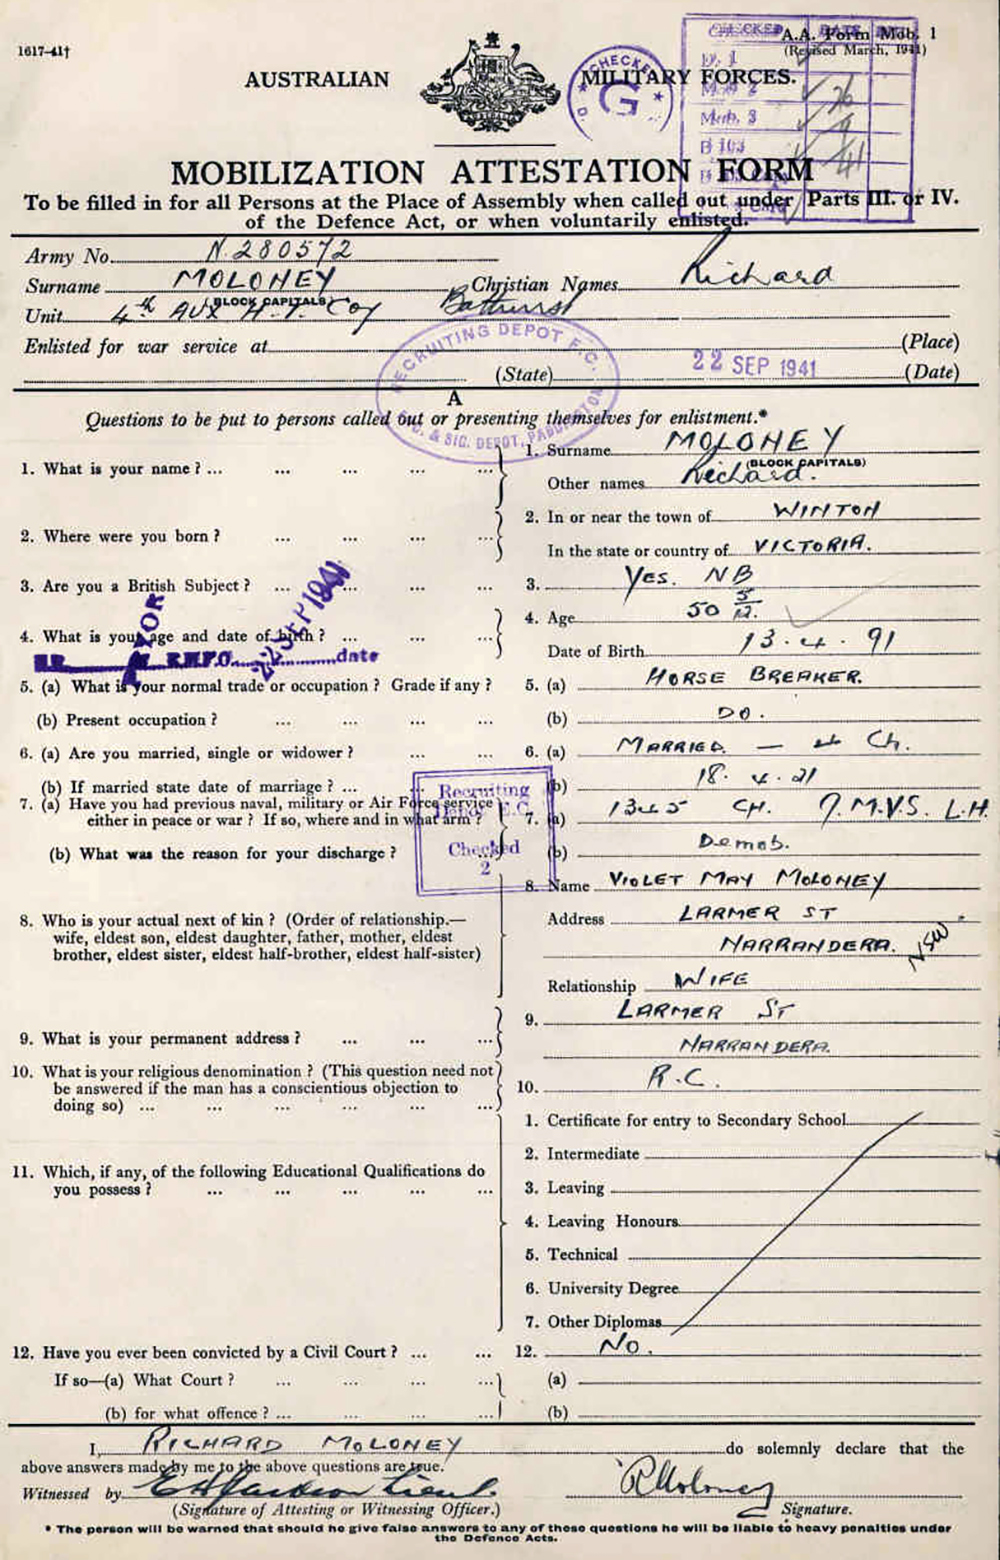 1617-41†
A.A. Form Mob. 1
(Revised March, 1941)
AUSTRALIAN MILITARY FORCES.
CHECKED DATE INT
D. 1
Mob. 3
B 103
26
9
41
CHECKED
G
MOBILIZATION ATTESTATION FORM
To be filled in for all Persons at the Place of Assembly when called out under Parts III. or IV.
of the Defence Act, or when voluntarily enlisted.
Army No. N.280572
Surname MOLONEY Christian Names Richard
(BLOCK CAPITALS)
Unit 4th Aux H.T. Coy Bathurst
Enlisted for war service at (Place)
(State) 22 SEP 1941 (Date)
RECRUITING DEPOT E.C.
& SIG. DEPOT, PADDINGTON
A
Questions to be put to persons called out or presenting themselves for enlistment.*
1. What is your name? ... ... ... ... 1. Surname MOLONEY
(BLOCK CAPITALS)
Other names Richard.
2. Where were you born? ... ... ... 2. In or near the town of WINTON
In the state or country of VICTORIA.
3. Are you a British Subject? ... ... ... ... 3. YES. NB
4. What is your age and date of birth? ... ... ... 4. Age 50 5/12
Date of Birth 13.4.91
R.M.F.O. 22 SEP 1941 date
5. (a) What is your normal trade or occupation? Grade if any? 5. (a) HORSE BREAKER.
(b) Present occupation? ... ... ... ... (b) DO.
6. (a) Are you married, single or widower? ... ... 6. (a) MARRIED. — Ch.
(b) If married state date of marriage? ... ... ... (b) 18.4.21
7. (a) Have you had previous naval, military or Air Force service
either in peace or war? If so, where and in what arm? 7. (a) 1345 CH. 7.M.V.S. L.H.
(b) What was the reason for your discharge? ... (b) Demob.
Recruiting
Depot E.C.
Checked
2
8. Name VIOLET MAY MOLONEY
8. Who is your actual next of kin? (Order of relationship.— Address LARMER ST
wife, eldest son, eldest daughter, father, mother, eldest NARRANDERA. NSW.
brother, eldest sister, eldest half-brother, eldest half-sister)
Relationship WIFE
9. LARMER ST
9. What is your permanent address? ... ... ... NARRANDERA.
10. What is your religious denomination? (This question need not
be answered if the man has a conscientious objection to 10. R.C.
doing so) ... ... ... ... ... ...
1. Certificate for entry to Secondary School
2. Intermediate
11. Which, if any, of the following Educational Qualifications do
you possess? ... ... ... ... ... 3. Leaving
4. Leaving Honours
5. Technical
6. University Degree
7. Other Diplomas
12. Have you ever been convicted by a Civil Court? ... ... 12. NO.
If so—(a) What Court? ... ... ... ... (a)
(b) for what offence? ... ... ... ... (b)
I, RICHARD MOLONEY do solemnly declare that the
above answers made by me to the above questions are true.
Witnessed by E H Jackson Lieut. RMoloney
(Signature of Attesting or Witnessing Officer.) Signature.
* The person will be warned that should he give false answers to any of these questions he will be liable to heavy penalties under
the Defence Acts.